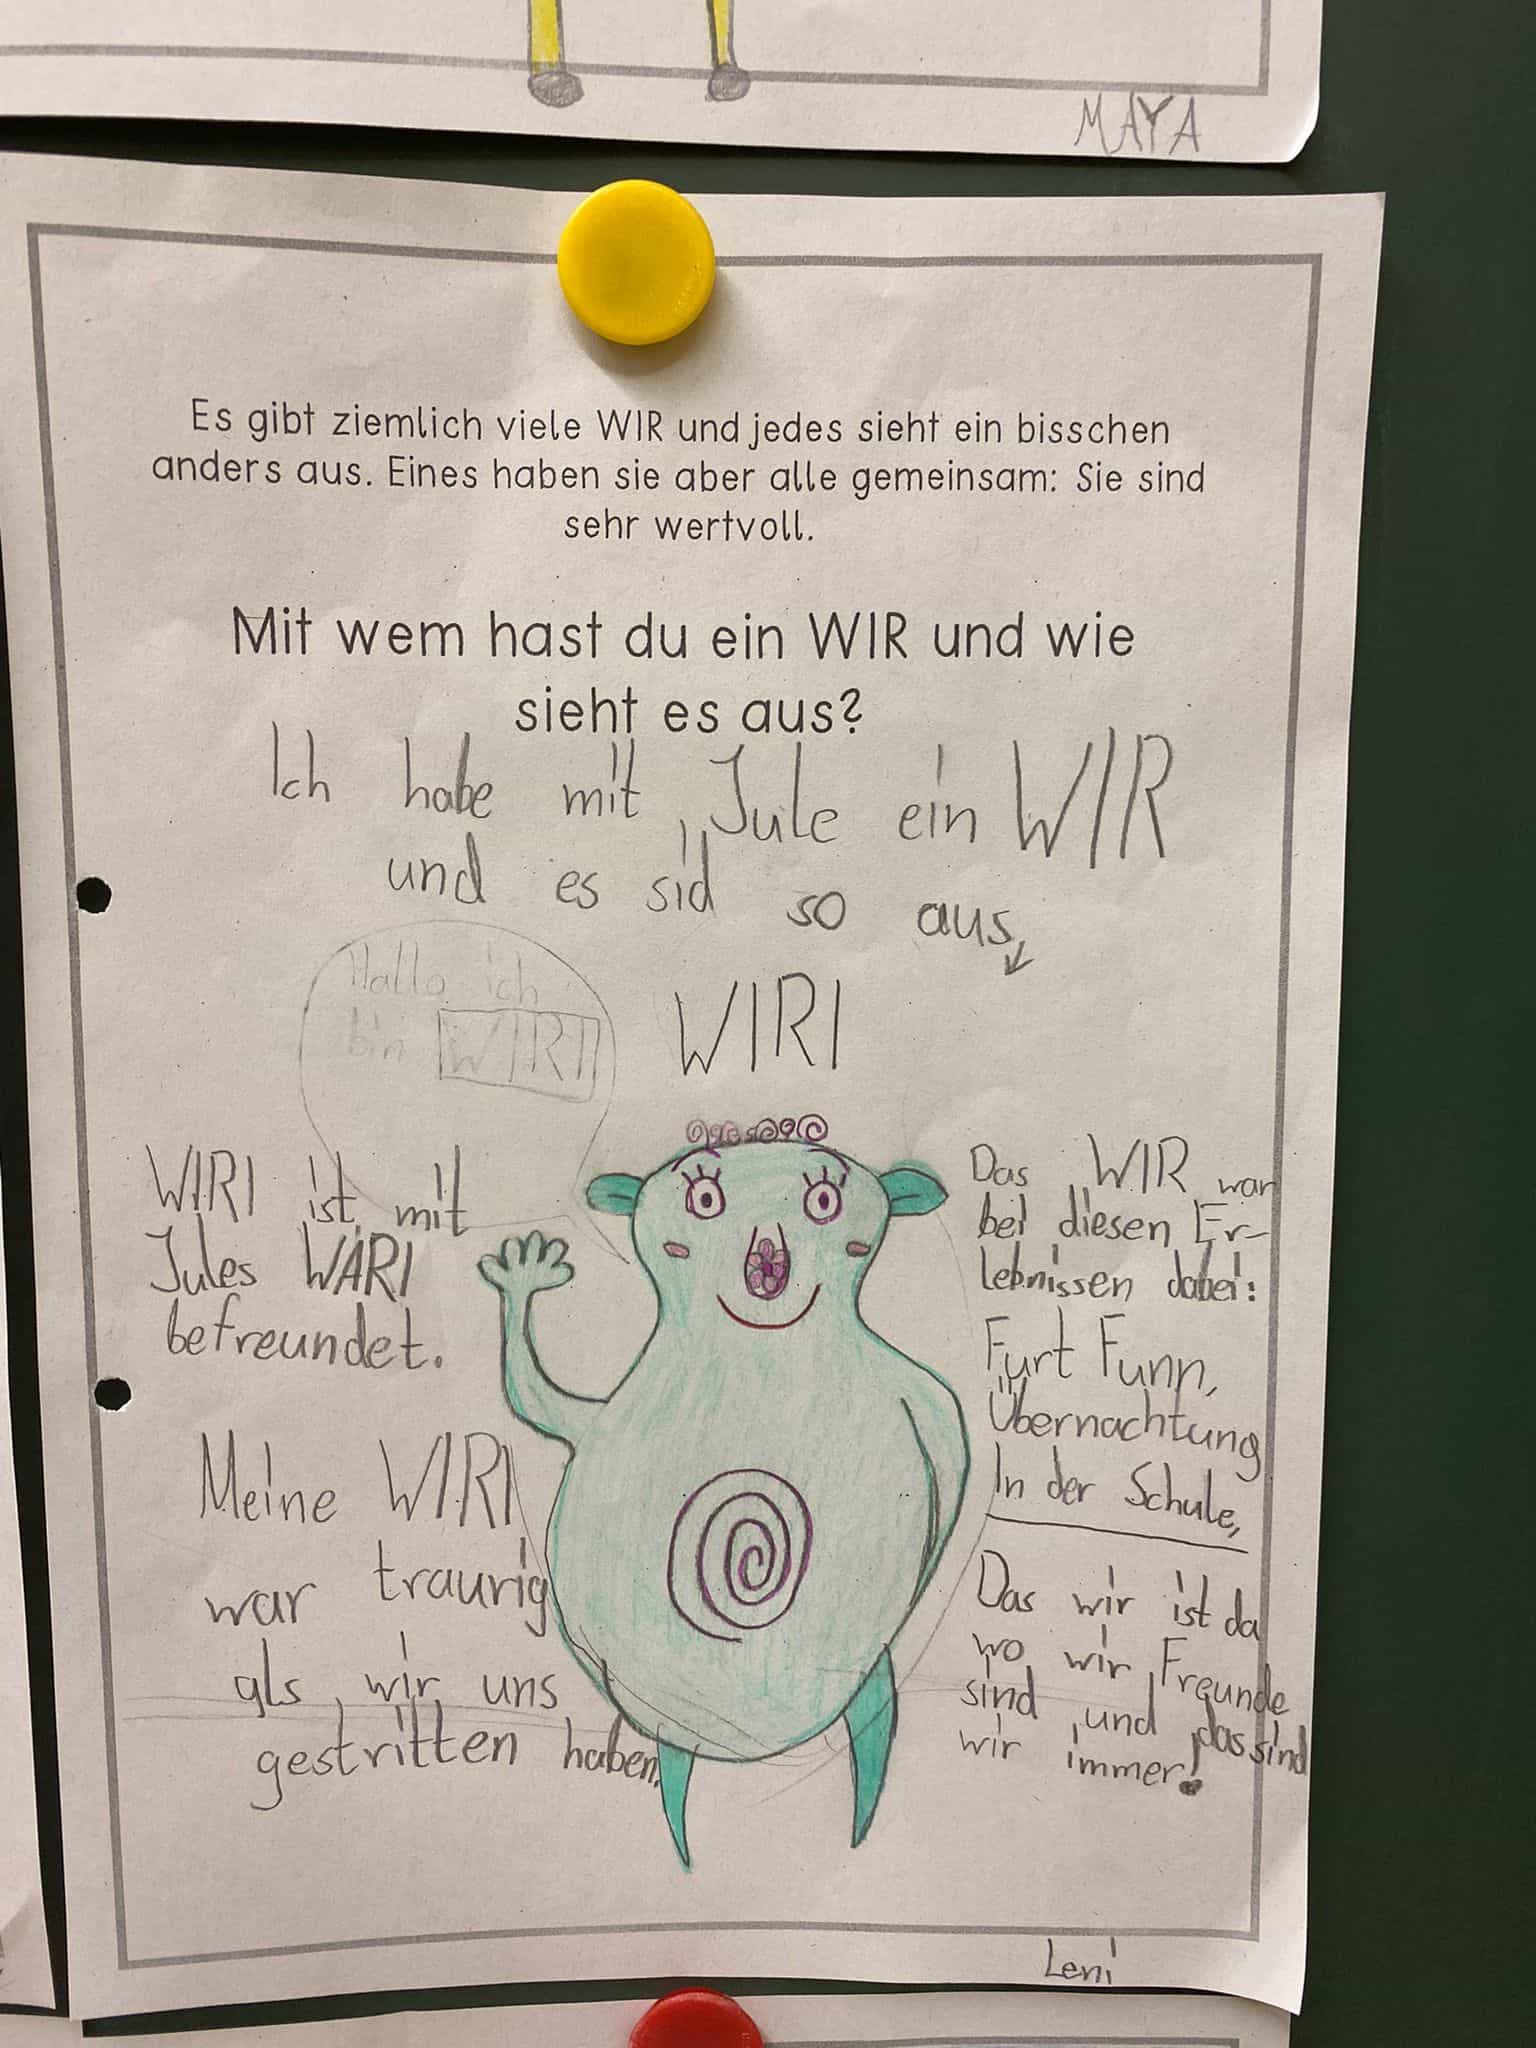 MAYA
Es gibt ziemlich viele WIR und jedes sieht ein bisschen
anders aus. Eines haben sie aber alle gemeinsam: Sie sind
sehr wertvoll.
Mit wem hast du ein WIR und wie
sieht es aus?
Ich habe mit Jule ein WIR
und es sid so aus
Hallo ich
bin WIRI
WIRI
WIRI ist mit
Jules WARI
befreundet.
Meine WIRI
war traurig
als wir uns
gestritten haben.
Das WIR war
bei diesen Er-
lebnissen dabei:
Furt Funn,
Übernachtung
In der Schule,
Das wir ist da
wo wir Freunde
sind und das sind
wir immer!
Leni